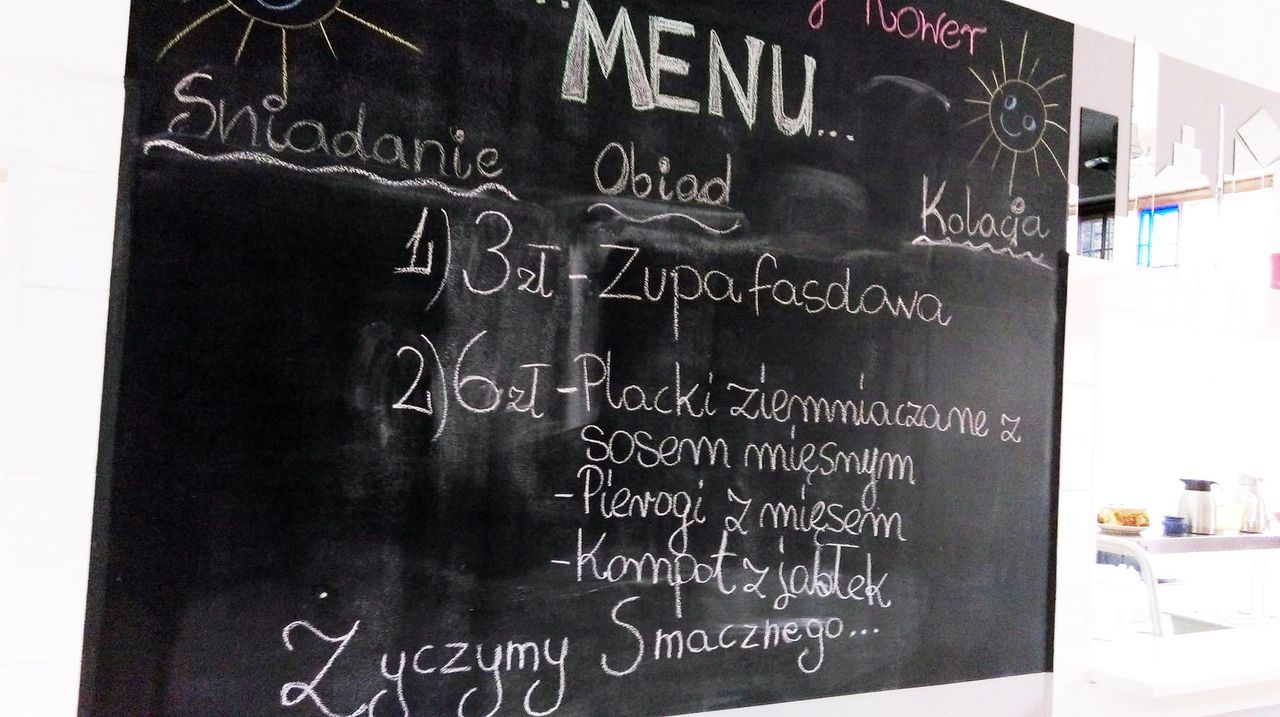 y Rower
MENU...
Śniadanie
Obiad
Kolacja
1) 3 zł - Zupa fasolowa
2) 6 zł - Placki ziemniaczane z
sosem mięsnym
- Pierogi z mięsem
- Kompot z jabłek
Życzymy Smacznego...